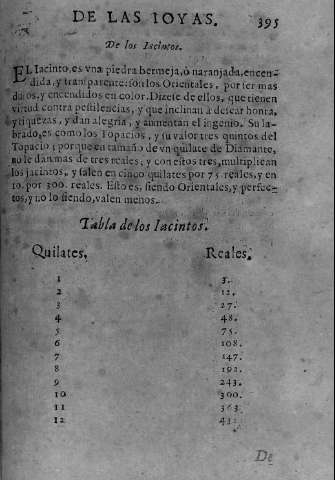 DE LAS IOYAS. 395
De los Iacintos.
EL Iacinto, es vna piedra bermeja, ò naranjada, encen-
dida, y transparente: son los Orientales, por ser mas
duros, y encendidos en color. Dizese de ellos, que tienen
virtud contra pestilencias, y que inclinan a desear honra,
y riquezas, y dan alegria, y aumentan el ingenio. Su la-
brado, es como los Topacios, y su valor tres quintos del
Topacio; porque en tamaño de vn quilate de Diamante,
no le dan mas de tres reales; y con estos tres, multiplican
los jacintos, y salen en cinco quilates por 75. reales, y en
10. por 300. reales. Esto es, siendo Orientales, y perfec-
tos, y no lo siendo, valen menos.
Tabla de los Iacintos.
Quilates. Reales.
1 3.
2 12.
3 27.
4 48.
5 75.
6 108.
7 147.
8 192.
9 243.
10 300.
11 363.
12 432.
De